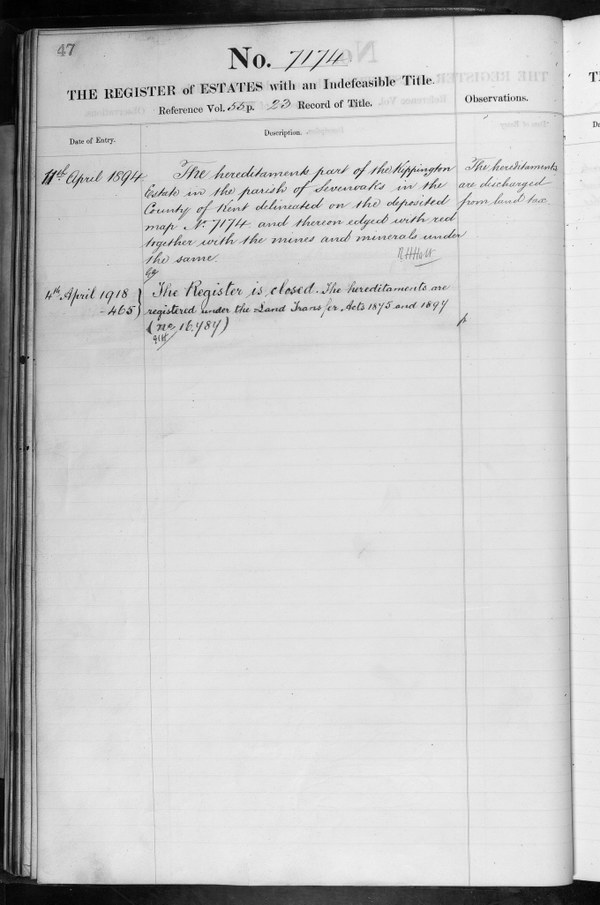 47
No. 7174
THE REGISTER of ESTATES with an Indefeasible Title.
Reference Vol. 55 p. 23 Record of Title.
Observations.
Date of Entry.
Description.
11th April 1894
The hereditaments part of the Kippington
Estate in the parish of Sevenoaks in the
County of Kent delineated on the deposited
map No. 7174 and thereon edged with red
together with the mines and minerals under
the same.
The hereditaments
are discharged
from land tax
4th April 1918
465
The Register is closed. The hereditaments are
registered under the Land Transfer Acts 1875 and 1897
(no. 16787)